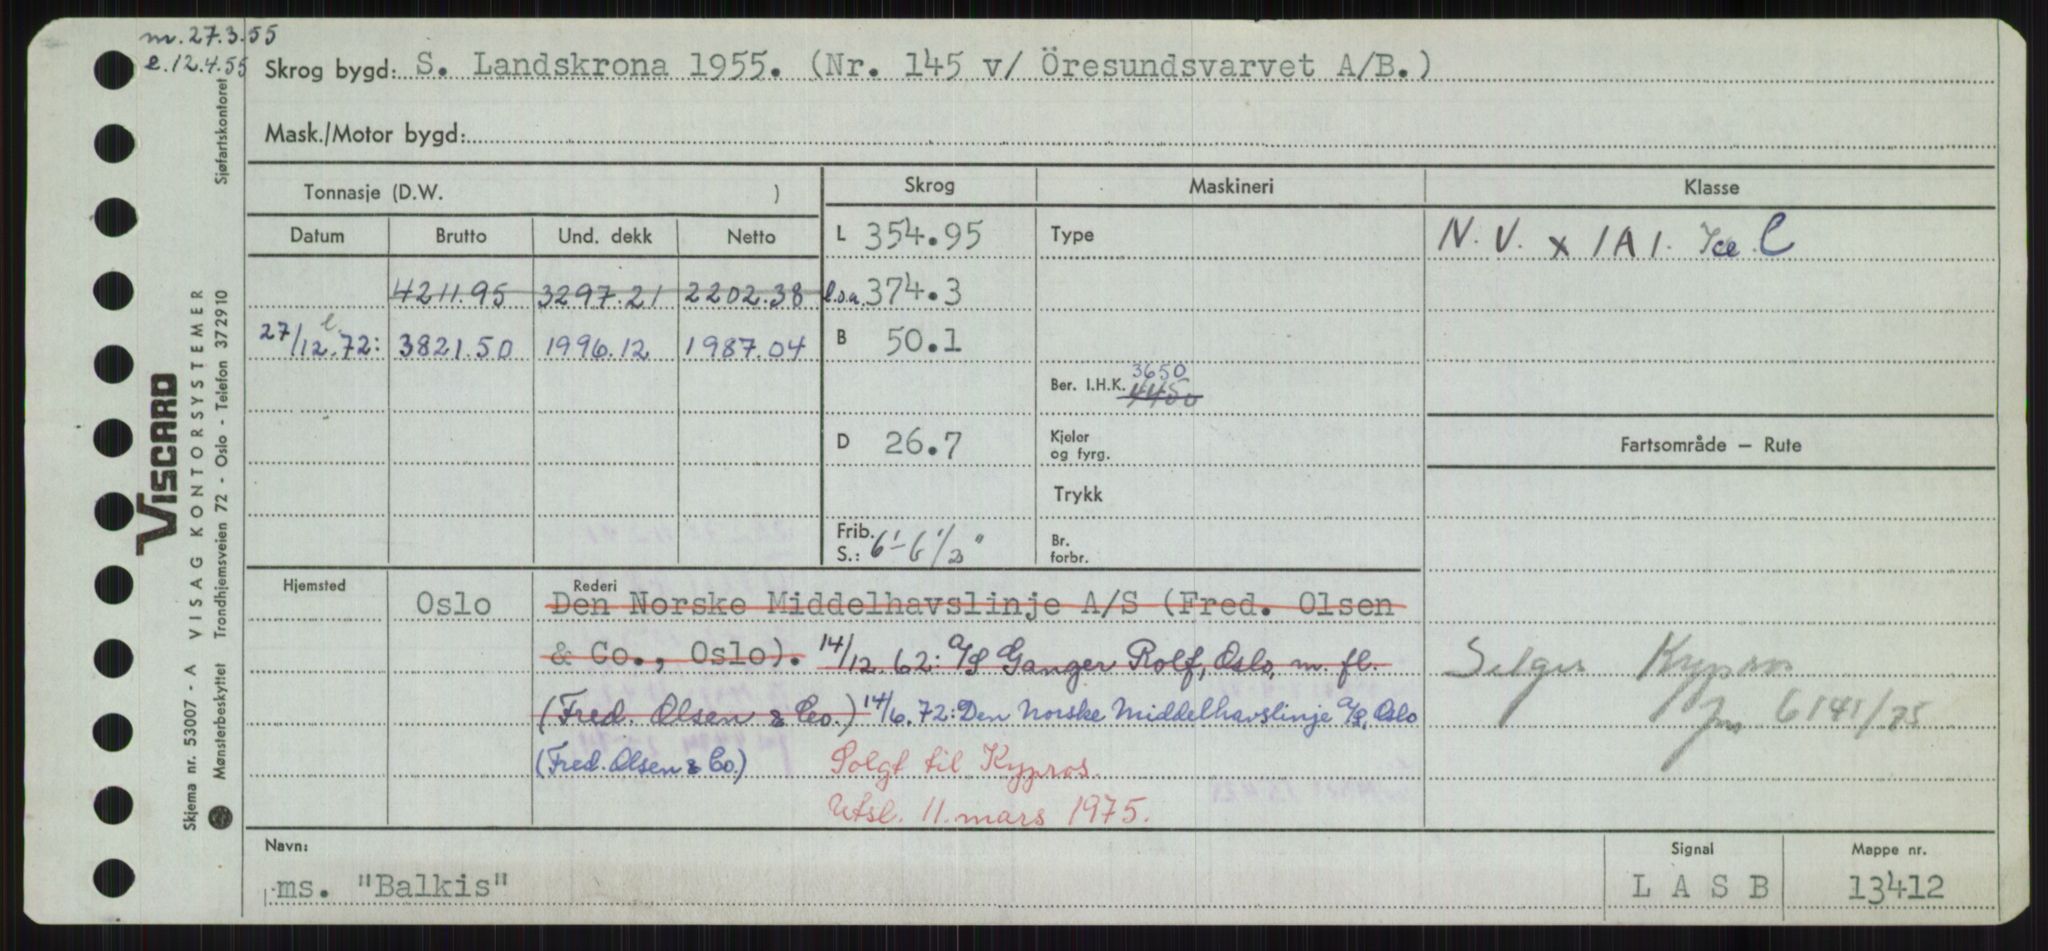 m. 27.3.55
e. 12.4.55
Skrog bygd: S. Landskrona 1955. (Nr. 145 v/ Öresundsvarvet A/B.)
Mask./Motor bygd:
Tonnasje (D.W. )
Skrog
Maskineri
Klasse
Datum
Brutto
Und. dekk
Netto
L 354.95
Type
N. V. x 1A1. Ice C
4211.95 3297.21 2202.38
l.o.a. 374.3
27/12.72: 3821.50 1996.12 1987.04
B 50.1
3650
Ber. I.H.K. 4450
D 26.7
Kjeler
og fyrg.
Fartsområde — Rute
Trykk
Frib.
S.: 6'-6 1/2"
Br.
forbr.
Hjemsted
Oslo
Rederi
Den Norske Middelhavslinje A/S (Fred. Olsen
& Co., Oslo). 14/12.62: A/S Ganger Rolf, Oslo, m. fl.
(Fred. Olsen & Co.) 14/6.72: Den Norske Middelhavslinje A/S, Oslo
(Fred. Olsen & Co.) Solgt til Kypros.
Utsl. 11. mars 1975.
Selges Kypros
6141/75
Navn:
ms. "Balkis"
Signal
L A S B
Mappe nr.
13412
VISCARD
VISAG KONTORSYSTEMER
Skjema nr. 53007 - A
Mønsterbeskyttet Trondhjemsveien 72 - Oslo - Telefon 372910
Sjøfartskontoret